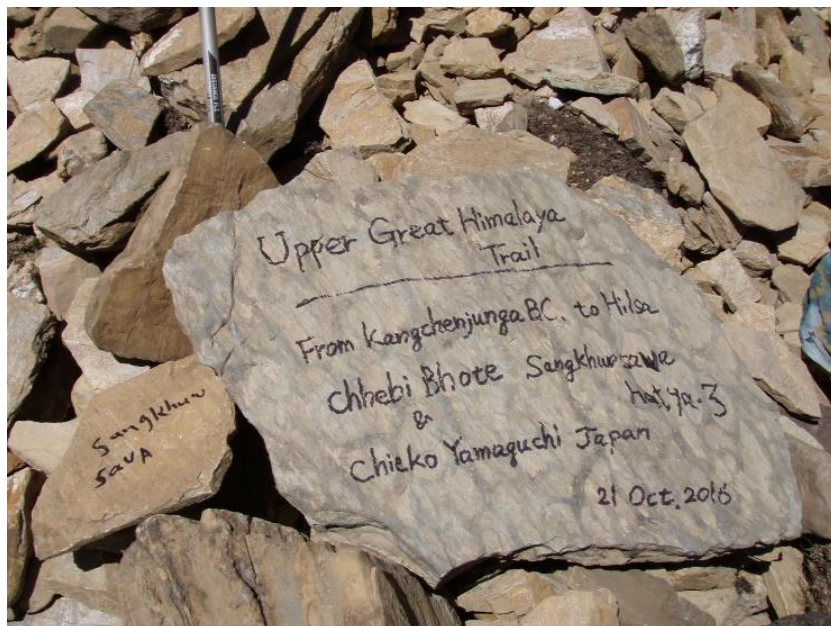 Upper Great Himalaya
Trail
From Kangchenjunga B.C. to Hilsa
Chhebi Bhote Sangkhuwasawa
hatya-3
&
Chieko Yamaguchi Japan
21 Oct. 2018
Sangkhuw
SAVA